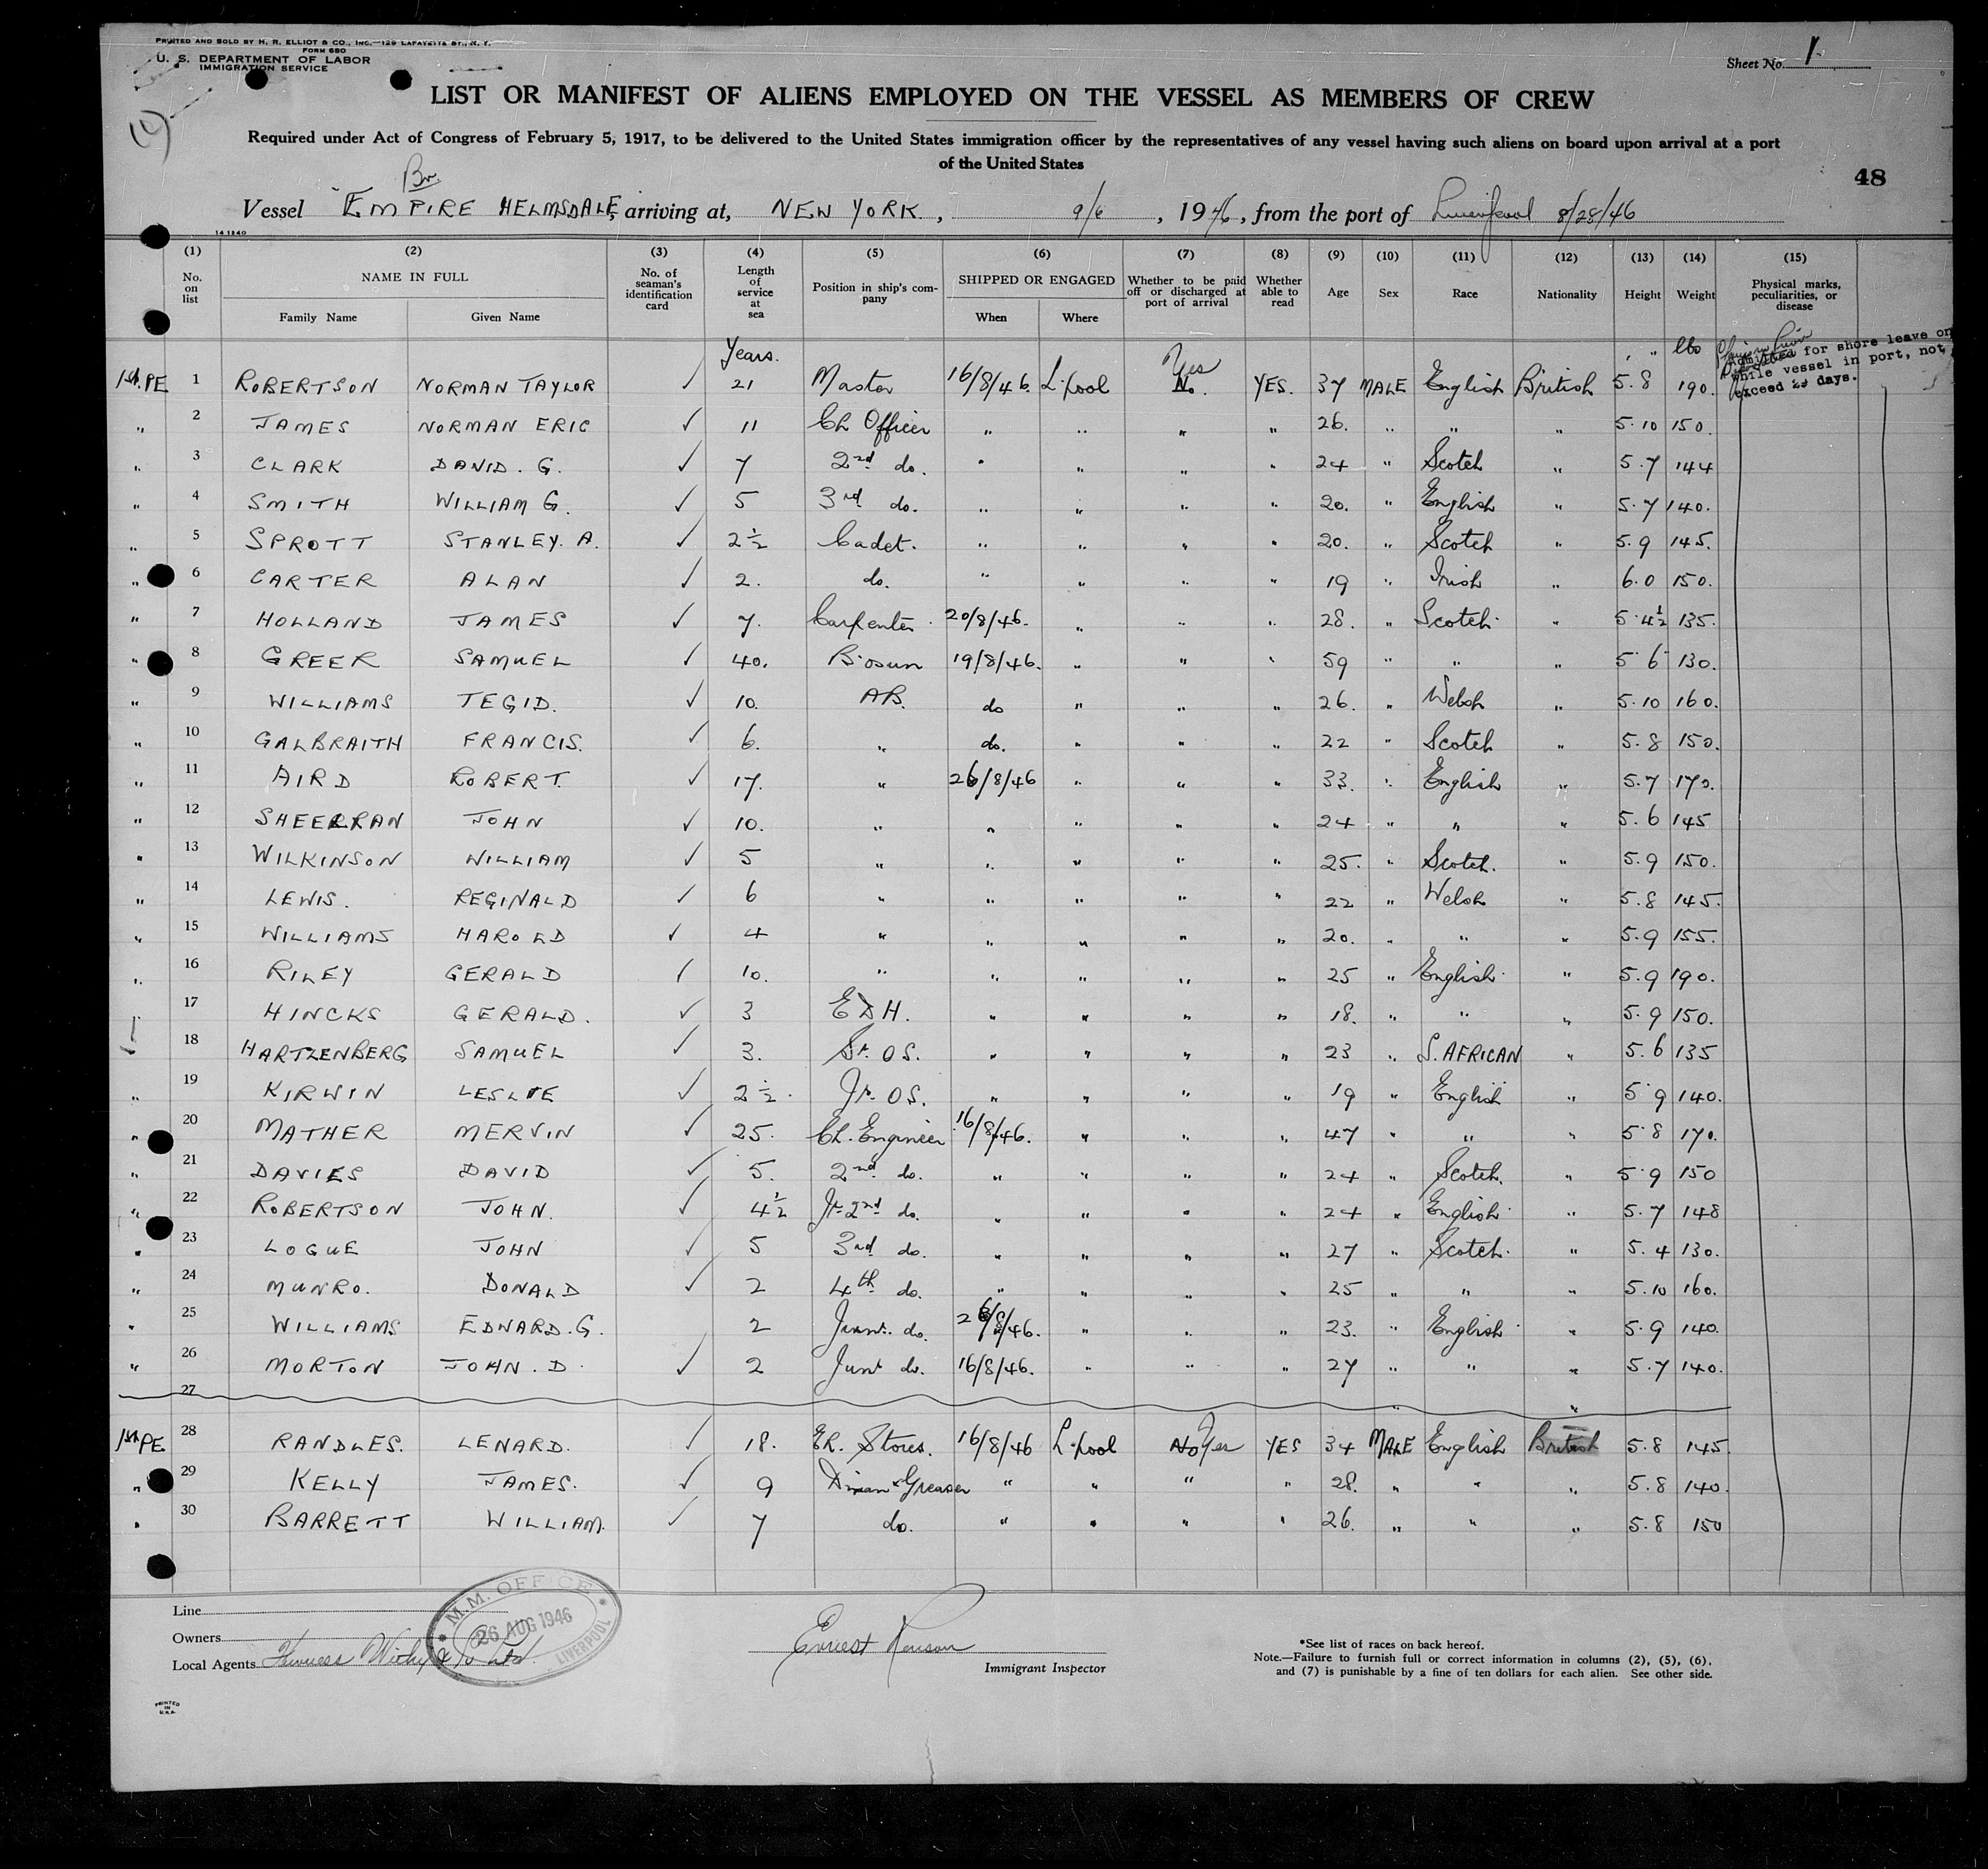 PRINTED AND SOLD BY H. R. ELLIOT & CO., INC.—129 LAFAYETTE ST., N. Y.
FORM 680
U. S. DEPARTMENT OF LABOR
IMMIGRATION SERVICE
Sheet No. 1
LIST OR MANIFEST OF ALIENS EMPLOYED ON THE VESSEL AS MEMBERS OF CREW
Required under Act of Congress of February 5, 1917, to be delivered to the United States immigration officer by the representatives of any vessel having such aliens on board upon arrival at a port
of the United States
48
Br.
Vessel EMPIRE HELMSDALE, arriving at, NEW YORK, 9/6, 1946, from the port of Liverpool 8/28/46
14 1240
(1) (2) (3) (4) (5) (6) (7) (8) (9) (10) (11) (12) (13) (14) (15)
No. on list NAME IN FULL Family Name Given Name No. of seaman's identification card Length of service at sea Position in ship's company SHIPPED OR ENGAGED When Where Whether to be paid off or discharged at port of arrival Whether able to read Age Sex Race Nationality Height Weight Physical marks, peculiarities, or disease
Years. ' " lbs
Admitted for shore leave on
while vessel in port, not
exceed 29 days.
1st PE 1 ROBERTSON NORMAN TAYLOR ✓ 21 Master 16/8/46. L'pool No. Yes YES. 37 MALE English British 5.8 190.
" 2 JAMES NORMAN ERIC ✓ 11 Ch Officer " " " " 26. " " " 5.10 150.
" 3 CLARK DAVID. G. ✓ 7 2nd do. " " " " 24 " Scotch " 5.7 144
" 4 SMITH WILLIAM G. ✓ 5 3rd do. " " " " 20. " English " 5.7 140.
" 5 SPROTT STANLEY. A. ✓ 2½ Cadet. " " " " 20. " Scotch " 5.9 145.
" 6 CARTER ALAN ✓ 2. do. " " " " 19 " Irish " 6.0 150.
" 7 HOLLAND JAMES ✓ 7. Carpenter 20/8/46. " " " 28. " Scotch " 5.4½ 135.
" 8 GREER SAMUEL ✓ 40. B'osun 19/8/46. " " " 59 " " " 5 6 130.
" 9 WILLIAMS TEGID. ✓ 10. AB. do " " " 26. " Welsh " 5.10 160.
" 10 GALBRAITH FRANCIS. ✓ 6. " do. " " " 22 " Scotch " 5.8 150.
" 11 AIRD ROBERT. ✓ 17. " 26/8/46 " " " 33. " English " 5.7 170.
" 12 SHEERRAN JOHN ✓ 10. " " " " " 24 " " " 5.6 145
" 13 WILKINSON WILLIAM ✓ 5 " " " " " 25. " Scotch. " 5.9 150.
" 14 LEWIS. REGINALD ✓ 6 " " " " " 22 " Welsh " 5.8 145.
" 15 WILLIAMS HAROLD ✓ 4 " " " " " 20. " " " 5.9 155.
" 16 RILEY GERALD ✓ 10. " " " " " 25 " English " 5.9 190.
" 17 HINCKS GERALD. ✓ 3 EDH. " " " " 18. " " " 5.9 150.
18 HARTZENBERG SAMUEL ✓ 3. Sr. OS. " " " " 23 " S. AFRICAN " 5.6 135
" 19 KIRWIN LESLIE ✓ 2½. Jr. OS. " " " " 19 " English " 5 9 140.
" 20 MATHER MERVIN ✓ 25. Ch. Engineer 16/8/46. " " " 47 " " " 5.8 170.
" 21 DAVIES DAVID ✓ 5. 2nd do. " " " " 24 " Scotch. " 5 9 150
" 22 ROBERTSON JOHN. ✓ 4½ Jr 2nd do. " " " " 24 " English " 5.7 148
" 23 LOGUE JOHN ✓ 5 3rd do. " " " " 27 " Scotch. " 5.4 130.
" 24 MUNRO. DONALD ✓ 2 4th do. " " " " 25 " " " 5.10 160.
" 25 WILLIAMS EDWARD. G. 2 do. 26/8/46. " " " 23. " English " 5.9 140.
" 26 MORTON JOHN. D. ✓ 2 Junr do. 16/8/46. " " " 27 " " " 5.7 140.
27 " "
1st PE 28 RANDLES. LENARD. ✓ 18. ER. Stores. 16/8/46 L'pool No Yes YES 34 MALE English British 5.8 145.
" 29 KELLY JAMES. ✓ 9 & Greaser " " " " 28. " " " 5.8 140.
" 30 BARRETT WILLIAM. ✓ 7 do. " " " " 26. " " " 5.8 150
Line
Owners
Local Agents Furness Withy & Co Ltd.
M.M. OFFICE
26 AUG 1946
LIVERPOOL
Ernest
Immigrant Inspector
*See list of races on back hereof.
Note.—Failure to furnish full or correct information in columns (2), (5), (6),
and (7) is punishable by a fine of ten dollars for each alien. See other side.
PRINTED
IN
U.S.A.